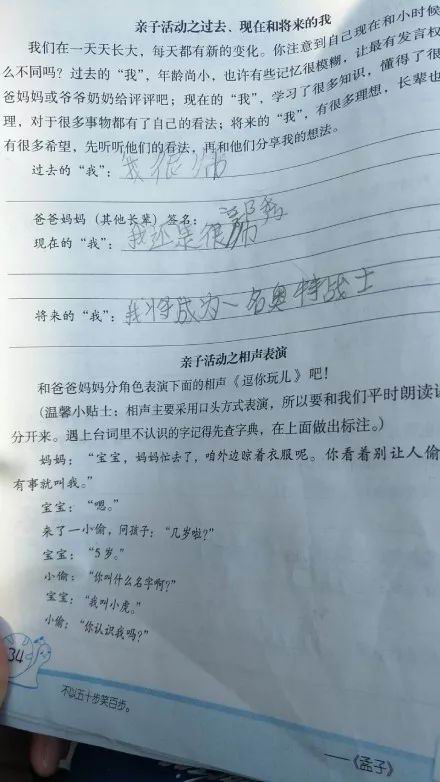 亲子活动之过去、现在和将来的我
我们在一天天长大，每天都有新的变化。你注意到自己现在和小时候
么不同吗？过去的“我”，年龄尚小，也许有些记忆很模糊，让最有发言权
爸妈妈或爷爷奶奶给评评吧；现在的“我”，学习了很多知识，懂得了很
理，对于很多事物都有了自己的看法；将来的“我”，有很多理想，长辈也
有很多希望，先听听他们的看法，再和他们分享我的想法。
过去的“我”：我很帅
爸爸妈妈（其他长辈）签名：
现在的“我”：我还是很帅
将来的“我”：我将成为一名奥特战士
亲子活动之相声表演
和爸爸妈妈分角色表演下面的相声《逗你玩儿》吧！
（温馨小贴士：相声主要采用口头方式表演，所以要和我们平时朗读
分开来。遇上台词里不认识的字记得先查字典，在上面做出标注。）
妈妈：“宝宝，妈妈忙去了，咱外边晾着衣服呢。你看着别让人偷
有事就叫我。”
宝宝：“嗯。”
来了一小偷，问孩子：“几岁啦？”
宝宝：“5岁。”
小偷：“你叫什么名字啊？”
宝宝：“我叫小虎。”
小偷：“你认识我吗？”
34
不以五十步笑百步。
——《孟子》